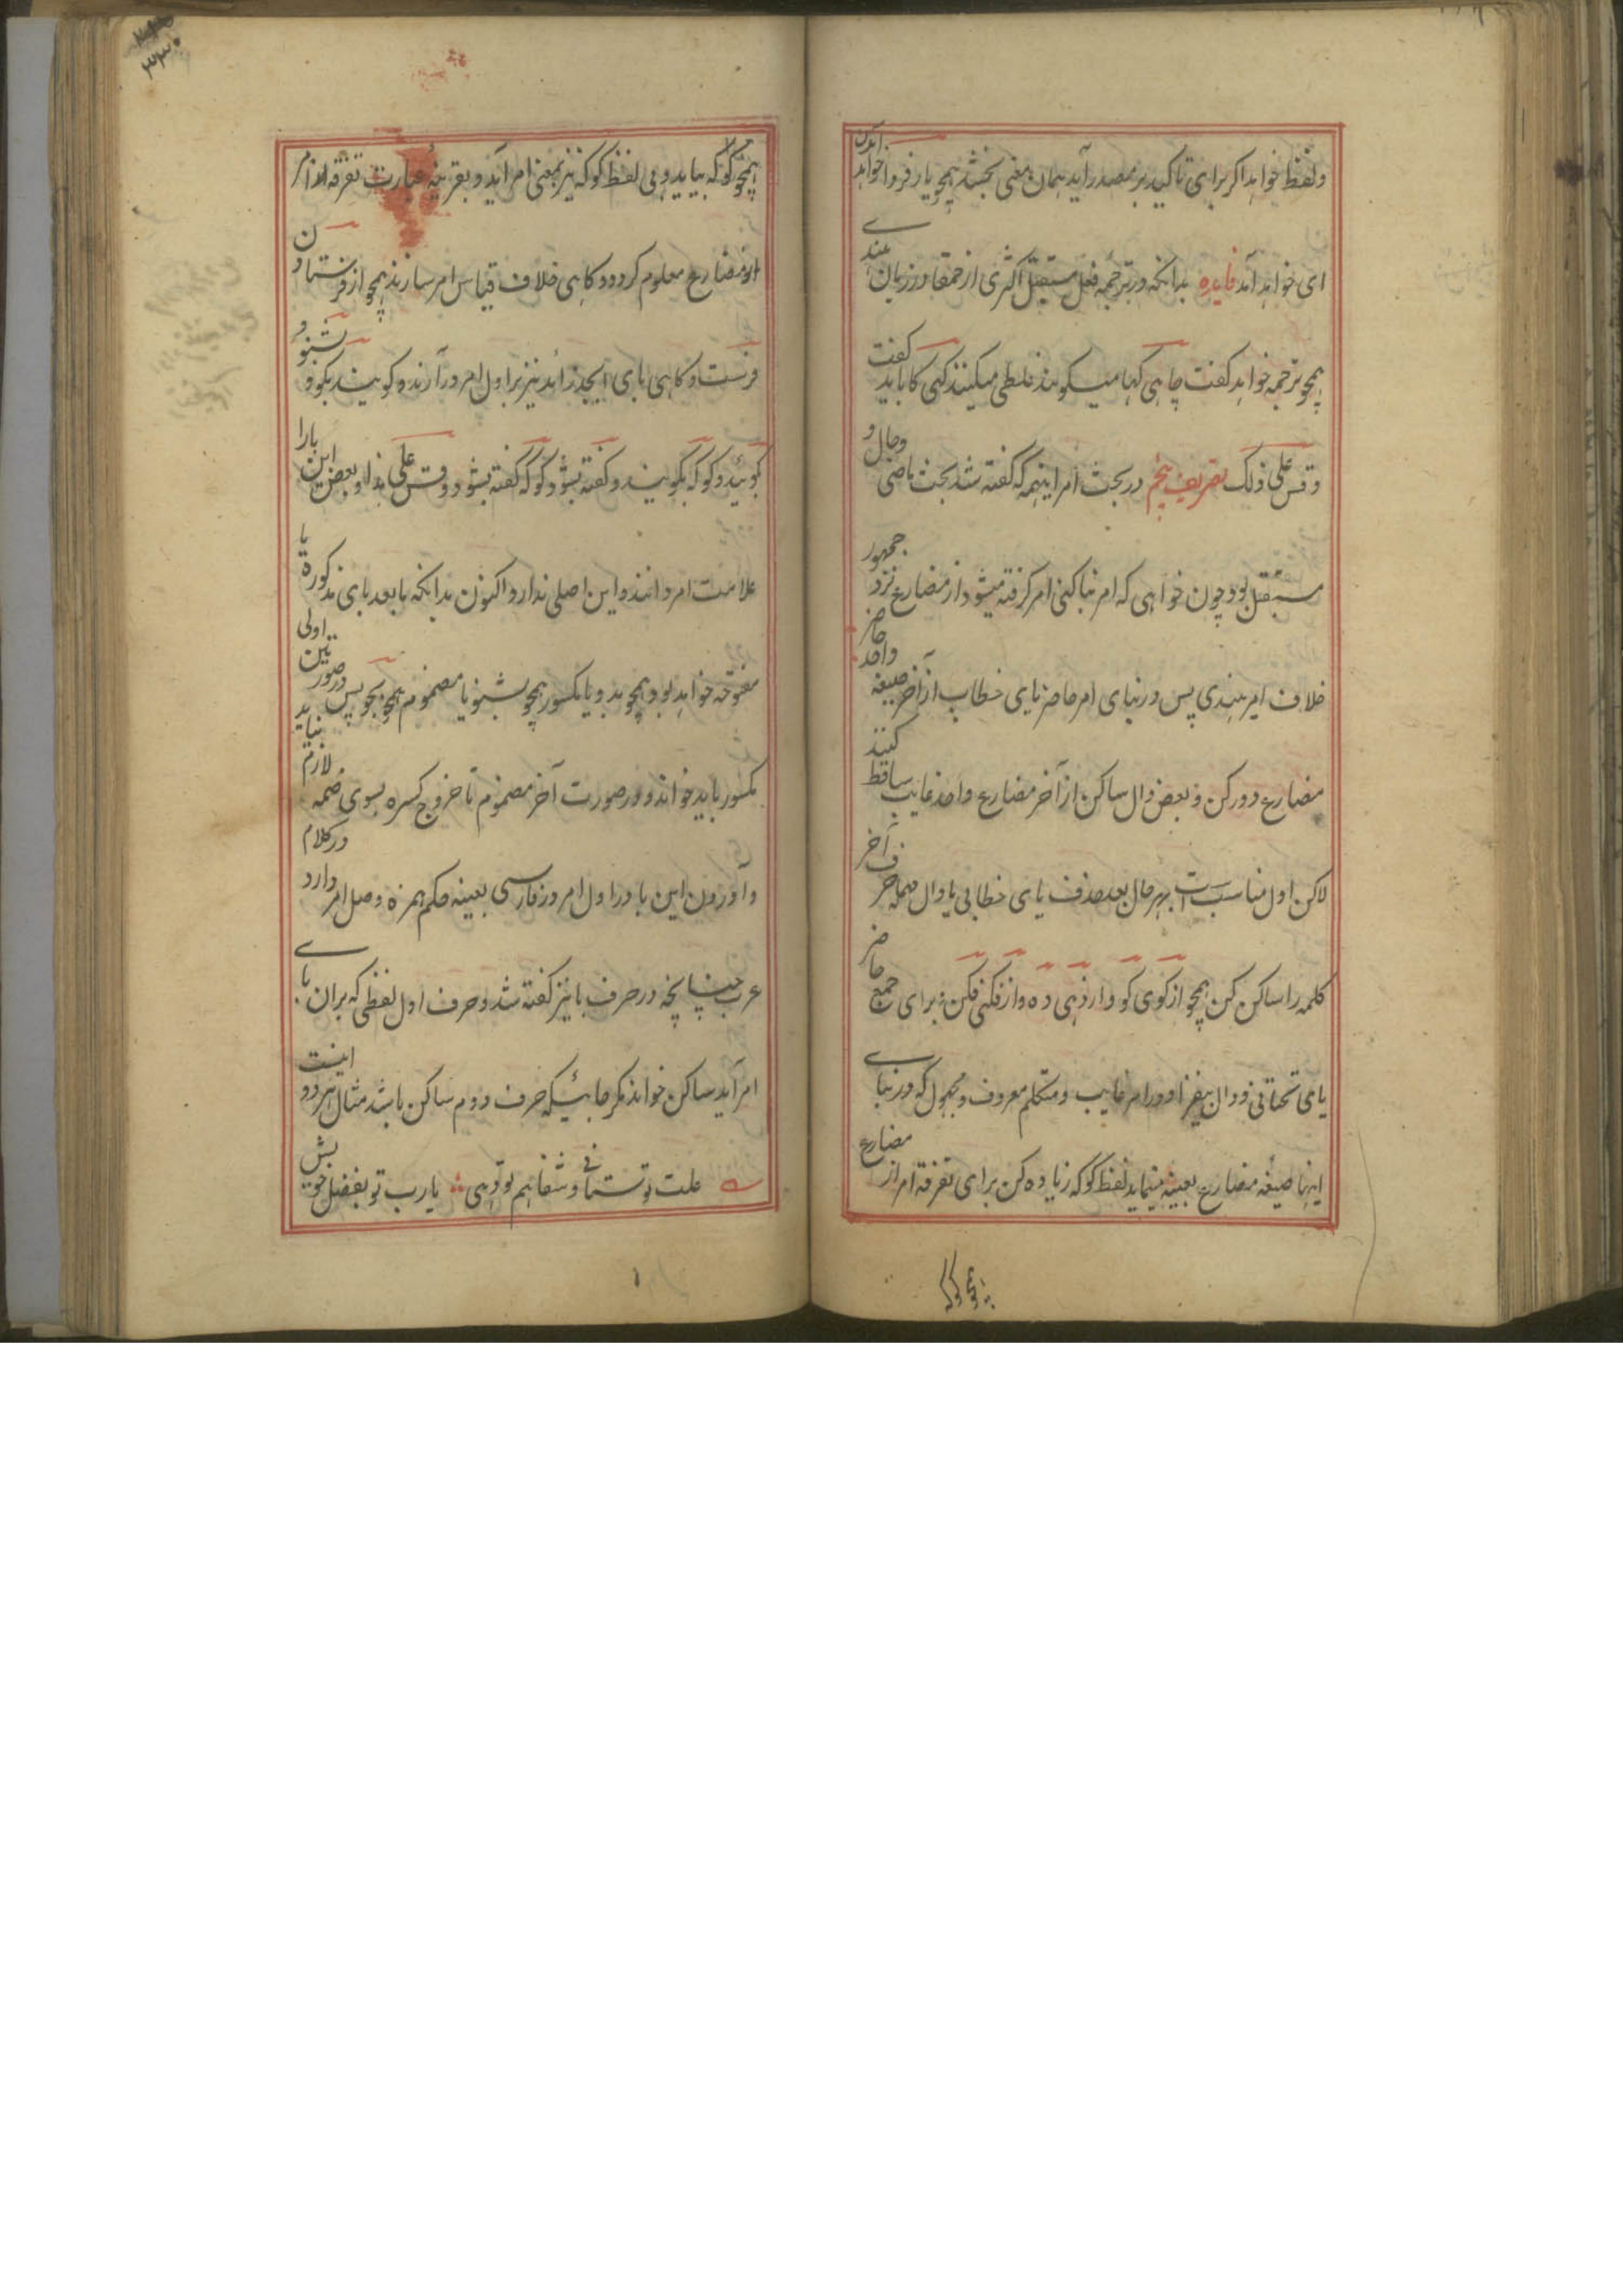 ولفظ خواهد اگر برای تاکید بر مصدر آید همان معنی بخشد همچو یار فردا خواهد آمدن
ای خواهد آمد فایده بدانکه در ترجمه فعل مستقبل اکثری از حمقا در زبان هندی
همچو ترجمه خواهد کفت چاهی کها میکویند غلطی میکنند کهی کا باید کفت
وقس علی ذلک تعریف پنجم در بحث امر اینهمه که کفته شد بحث ماضی وحال و
مستقبل بود چون خواهی که امر بنا کنی امر کرفته میشود از مضارع نزد جمهور
خلاف امر هندی پس در بنای امر حاضر یای خطاب از آخر صیغه واحد حاضر
مضارع دور کن و بعض دال ساکن از آخر مضارع واحد غایب ساقط کنند
لاکن اول مناسب است بهر حال بعد حذف یای خطابی یا دال مهمله حرف آخر
کلمه را ساکن کن همچو از کوی کو و از دهی ده و از فکنی فکن و برای جمع حاضر
یای تحتانی و دال بیفزا و در امر غایب ومتکلم معروف و مجهول که در بنای
اینها صیغه مضارع بعینه میماید لفظ کوکه زیاده کن برای تفرقه امر از مضارع
همچو کوکه
همچو کوکه بیاید و بی لفظ کوکه نیز بمعنی امر آید و بقرینهٔ عبارت تفرقه امر
از مضارع معلوم کردد و کاهی خلاف قیاس امر سازند همچو از فرستادن
فرست و کاهی بای ابجد زائد نیز بر اول امر در آرنده کویند بکو و بشنو و
بکوئید و کوکه بکویند و کفته بشود کوکه کفته بشود وقس علی هذا و بعض این بارا
علامت امر دانند و این اصلی ندارد اکنون بدانکه ما بعد بای مذکوره یا
مفتوحه خواهد بود همچو بده و یا مکسور همچو بشنو یا مضموم همچو بجو پس در صورتین اولی
مکسور باید خواند و در صورت آخر مضموم تا خروج کسره بسوی ضمه لازم نیاید
و آوردن این با در اول امر در فارسی بعینه حکم همزه وصل امر دارد در کلام
عرب چنانچه در حرف با نیز کفته شد و حرف اول لفظی که بران بای
امر آید ساکن خواند مکر جائیکه حرف دوم ساکن باشد مثال هر دو اینست
علت تو ستانی و شفا هم تو دهی یارب تو بفضل خویش